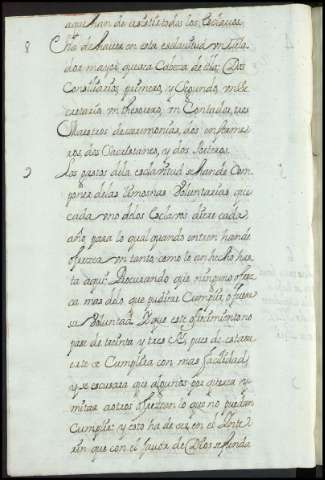 aque han de asistir todos los Esclavos.
8 Ha de haver en esta esclavitud un Mulla
dor mayor, que sera Cabeza de ella: Dos
Consiliarios, primero, y Segundo, un Se
cretario, un thesorero, un Contador, tres
Maestros de ceremonias, dos enferme
ros, dos Capellanes, y dos
Los gastos dela esclavitud se han de Com
poner delas limosnas Voluntarias que
cada uno delos Esclavos diere cada
año, para lo qual quando entren han de
ofrezer un tanto, como se an hecho has
ta aqui, Procurando que ninguno ofrez
ca mas delo que pudiere Cumplir, o fuere
su Voluntad. Y que este ofrecimiento no
pase de treinta y tres Rs, pues de esta suer
te se Cumplira con mas facilidad
y se escusara que algunos por querer y
mitar a otros ofrezcan lo que no puedan
Cumplir: y esto ha de ser, en el Inte
rin que con el favor de Dios se funda